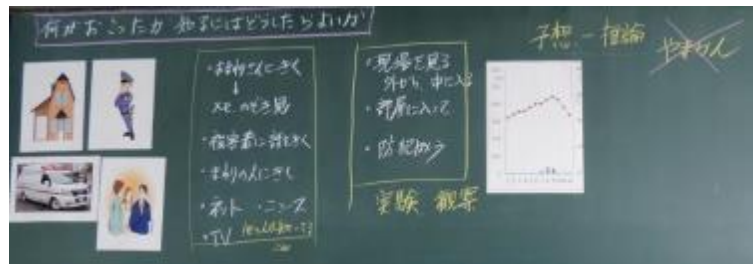 何がおこったか 知るにはどうしたらよいか
・おまわりさんにきく
↓
メモ のぞき見
・被害者に話をきく
・まわりの人にきく
・ネット・ニュース
・TV
・現場を見る
外から、中に入る
・部屋に入って
・防犯カメラ
実験 観察
予想 ー 推論
やまかん